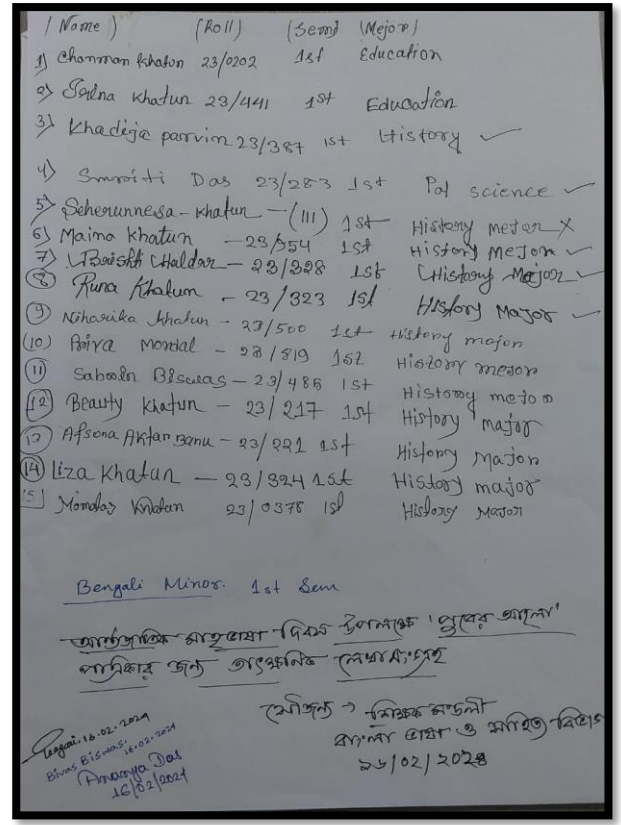 (Name) (Roll) (Sem) (Mejor)
1) Chanman Khatun 23/0202 1st Education
2) Khatun 23/441 1st Education
3) Khadija parvin 23/387 1st History ✓
4) Smriti Das 23/283 1st Pol science ✓
5) Seherunnesa - Khatun - (111) 1st History mejor X
6) Maina Khatun - 23/354 1st History Mejor ✓
7) Haldar - 23/328 1st History Major ✓
(8) Runa Khatun - 23/323 1st History Major ✓
(9) Niharika Khatun - 23/500 1st History major
(10) Mondal - 23/819 1st History mejor
(11) Biswas - 23/486 1st History mejor
(12) Beauty Khatun - 23/217 1st History major
(13) Afsona Aktar Banu - 23/221 1st History Major
(14) Liza Khatun - 23/324 1st History major
15) Khatun 23/0378 1st History Major
Bengali Minor. 1st Sem
আন্তর্জাতিক মাতৃভাষা দিবস উপলক্ষে 'পুবের আলো'
পত্রিকার জন্য তাৎক্ষনিক লেখা সংগ্রহ
সৌজন্য → শিক্ষক মণ্ডলী
বাংলা ভাষা ও সাহিত্য বিভাগ
১৬/০২/২০২৪
16.02.2024
Bivas Biswas. 16.02.2024
Ananya Das
16/02/2024